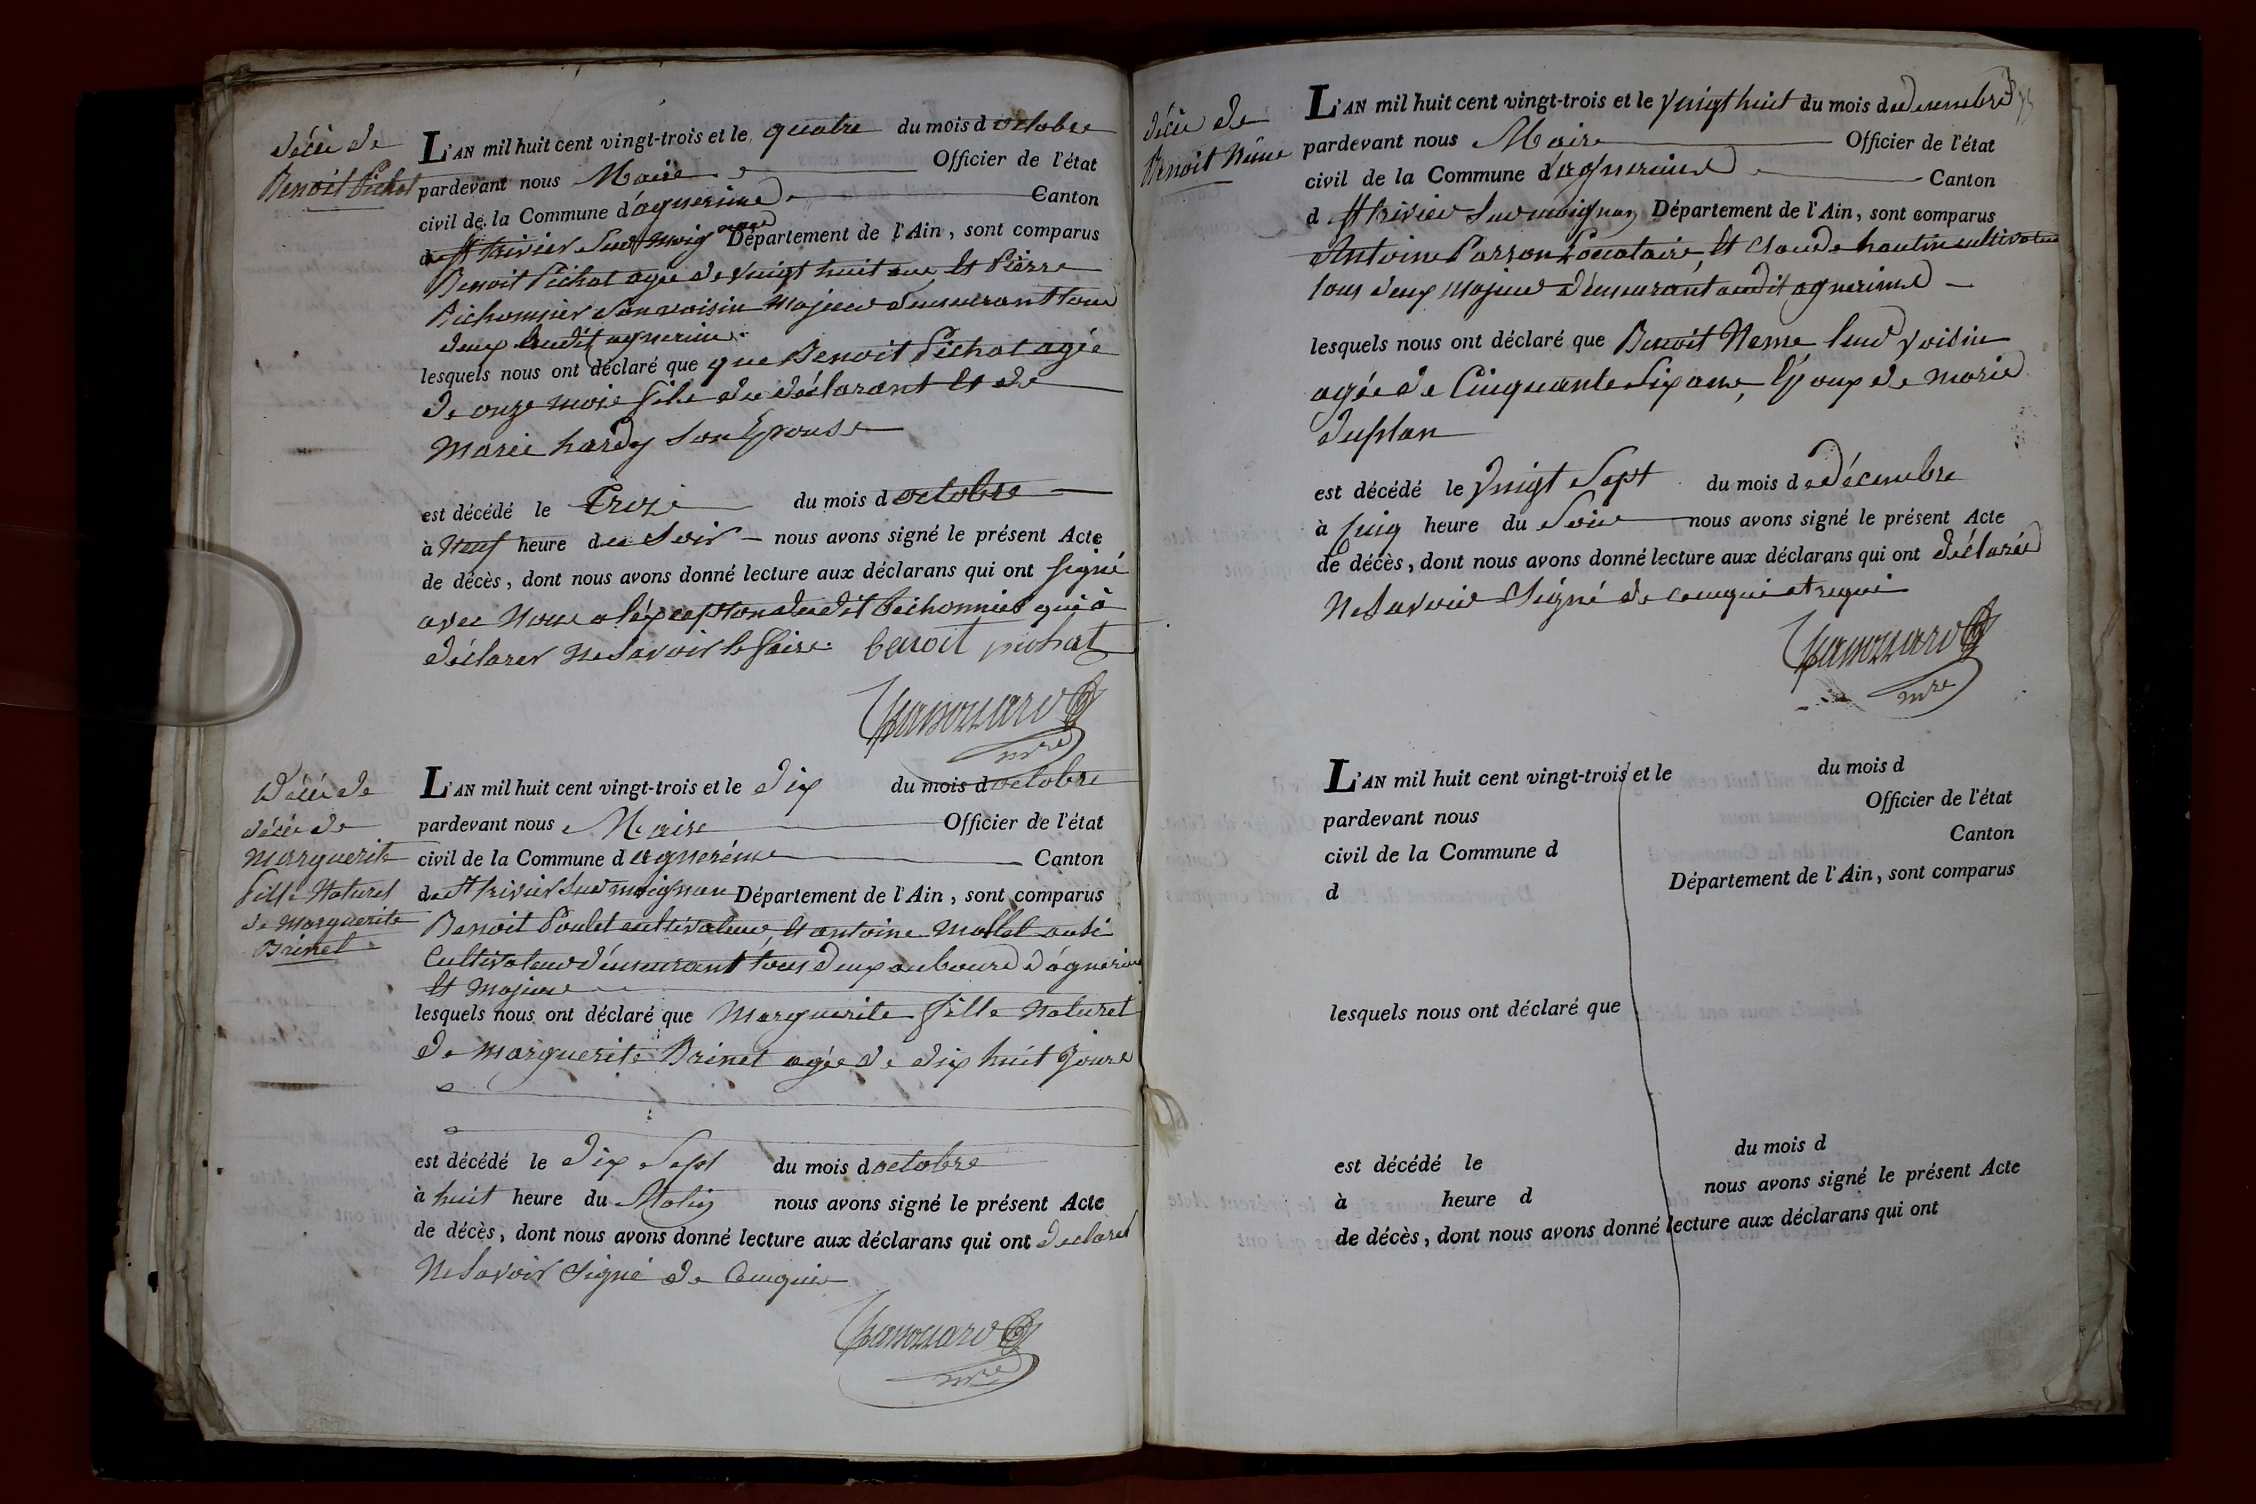 décé de
Benoit Pichat
L'AN mil huit cent vingt-trois et le quatre du mois d octobre
pardevant nous Maire Officier de l'état
civil de la Commune d'agnerine Canton
de st trivier sur moignans Département de l'Ain, sont comparus
Benoit Pichat agée de vingt huit ans et Pierre
Bichonnier son voisin majeur demeurant tous
deux audit agnerine
lesquels nous ont déclaré que que Benoit Pichat agée
de onze mois fils du déclarant et de
Marie hardy son Epouse
est décédé le Troz du mois d octobre
à Neuf heure du Soir nous avons signé le présent Acte
de décès, dont nous avons donné lecture aux déclarans qui ont signé
avec Nous a léxception dudit Bichonnier qui à
déclarer Ne savoir le faire. benoit pichat
mre
décé de
décé de
Marguerite
fille Naturel
de Marguerite
Brinet
L'AN mil huit cent vingt-trois et le dix du mois d octobre
pardevant nous Maire Officier de l'état
civil de la Commune d agnerine Canton
de st trivier sur moignan Département de l'Ain, sont comparus
Benoit Poulet cultivateur, et antoine Mollet ausi
Cultivateur demeurant tous deux au bourd d'agnerine
et majeur
lesquels nous ont déclaré que Marguerite fille Naturel
de Marguerite Brinet agée de dix huit Jours
est décédé le dix Sept du mois d octobre
à huit heure du Matin nous avons signé le présent Acte
de décès, dont nous avons donné lecture aux déclarans qui ont declaré
Ne savoir signé de Cenquis
mre
décé de
Benoit Néme
L'AN mil huit cent vingt-trois et le vingt huit du mois de decembre
pardevant nous Maire Officier de l'état
civil de la Commune d'agnerine Canton
d st trivier sur moignan Département de l'Ain, sont comparus
Antoine Locataire, et Claude hautin cultivateur
tous deux majeur demeurant audit agnerine
lesquels nous ont déclaré que Benoit Neme leur voisin
agée de Cinquante Six ans, Epoux de marie
duplan
est décédé le vingt Sept du mois de décembre
à Cinq heure du Soir nous avons signé le présent Acte
de décès, dont nous avons donné lecture aux déclarans qui ont déclarée
Ne savoir signé de cenqui et requi
mre
L'AN mil huit cent vingt-trois et le du mois d
pardevant nous Officier de l'état
civil de la Commune d Canton
d Département de l'Ain, sont comparus
lesquels nous ont déclaré que
est décédé le du mois d
à heure d nous avons signé le présent Acte
de décès, dont nous avons donné lecture aux déclarans qui ont